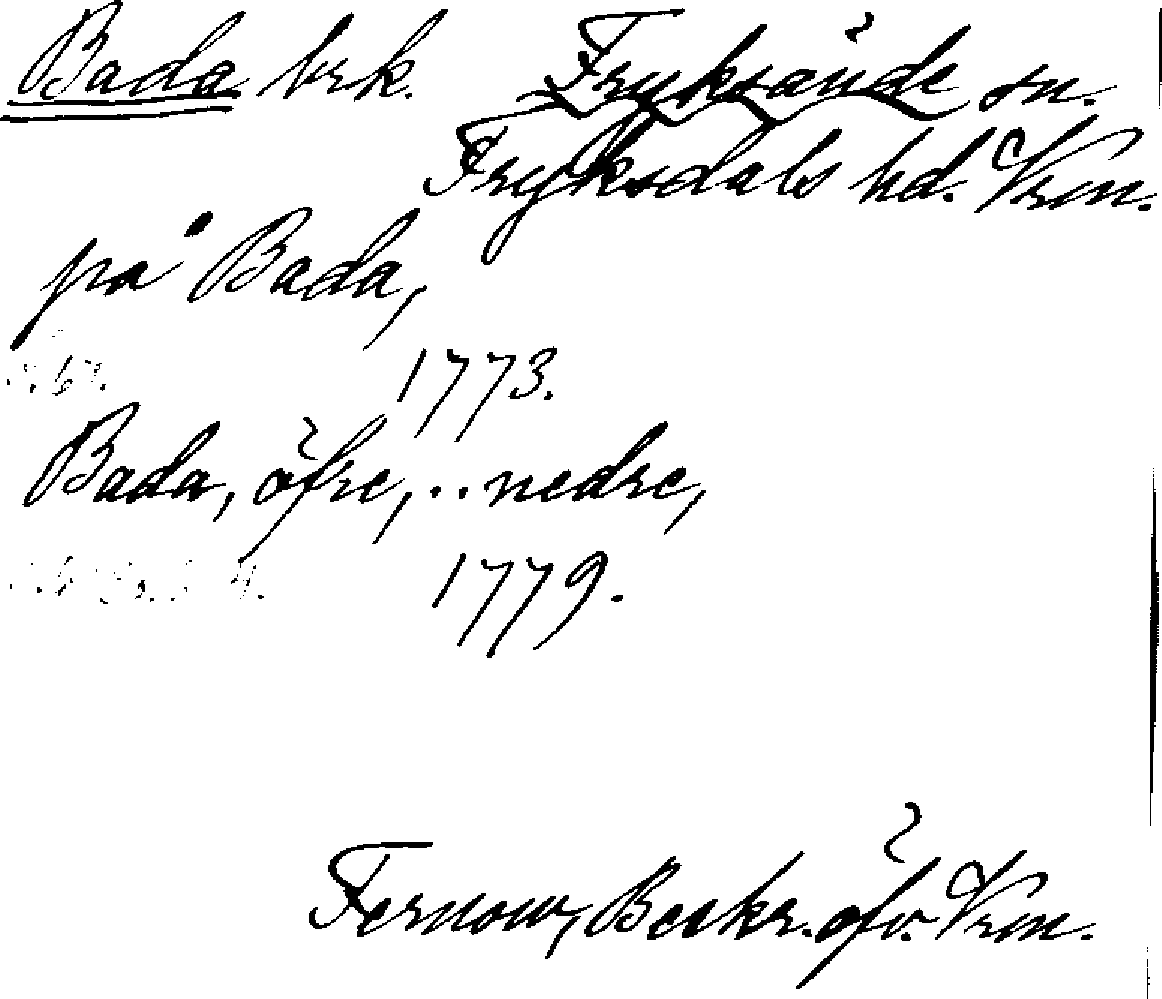 Bada brk. Fryksände sn.
Fryksdals hd. Vrm.
på Bada,
1773.
Bada, öfre, .. nedre,
1779.
Fernow, Beskr. öfv. Vrm.